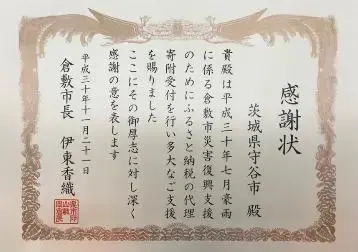 感謝状
茨城県守谷市 殿
貴殿は平成三十年七月豪雨
に係る倉敷市災害復興支援
のためにふるさと納税の代理
寄附受付を行い多大なご支援
を賜りました
ここにその御厚志に対し深く
感謝の意を表します
平成三十年十一月二十一日
倉敷市長 伊東香織